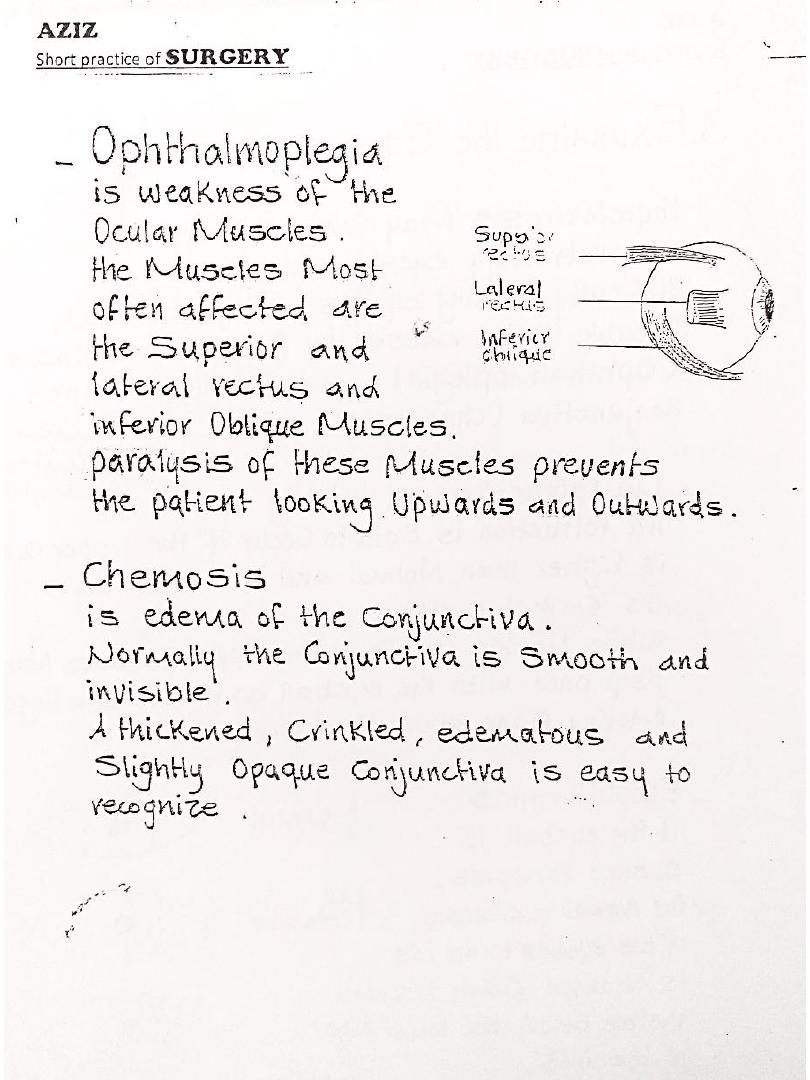 AZIZ
Short practice of SURGERY
- Ophthalmoplegia
is weakness of the
Ocular Muscles.
the Muscles Most
often affected are
the Superior and
lateral rectus and
inferior Oblique Muscles.
paralysis of these Muscles prevents
the patient looking Upwards and Outwards.
Superior
rectus
Lateral
rectus
Inferior
oblique
- Chemosis
is edema of the Conjunctiva.
Normally the Conjunctiva is Smooth and
invisible.
A thickened, Crinkled, edematous and
Slightly Opaque Conjunctiva is easy to
recognize.